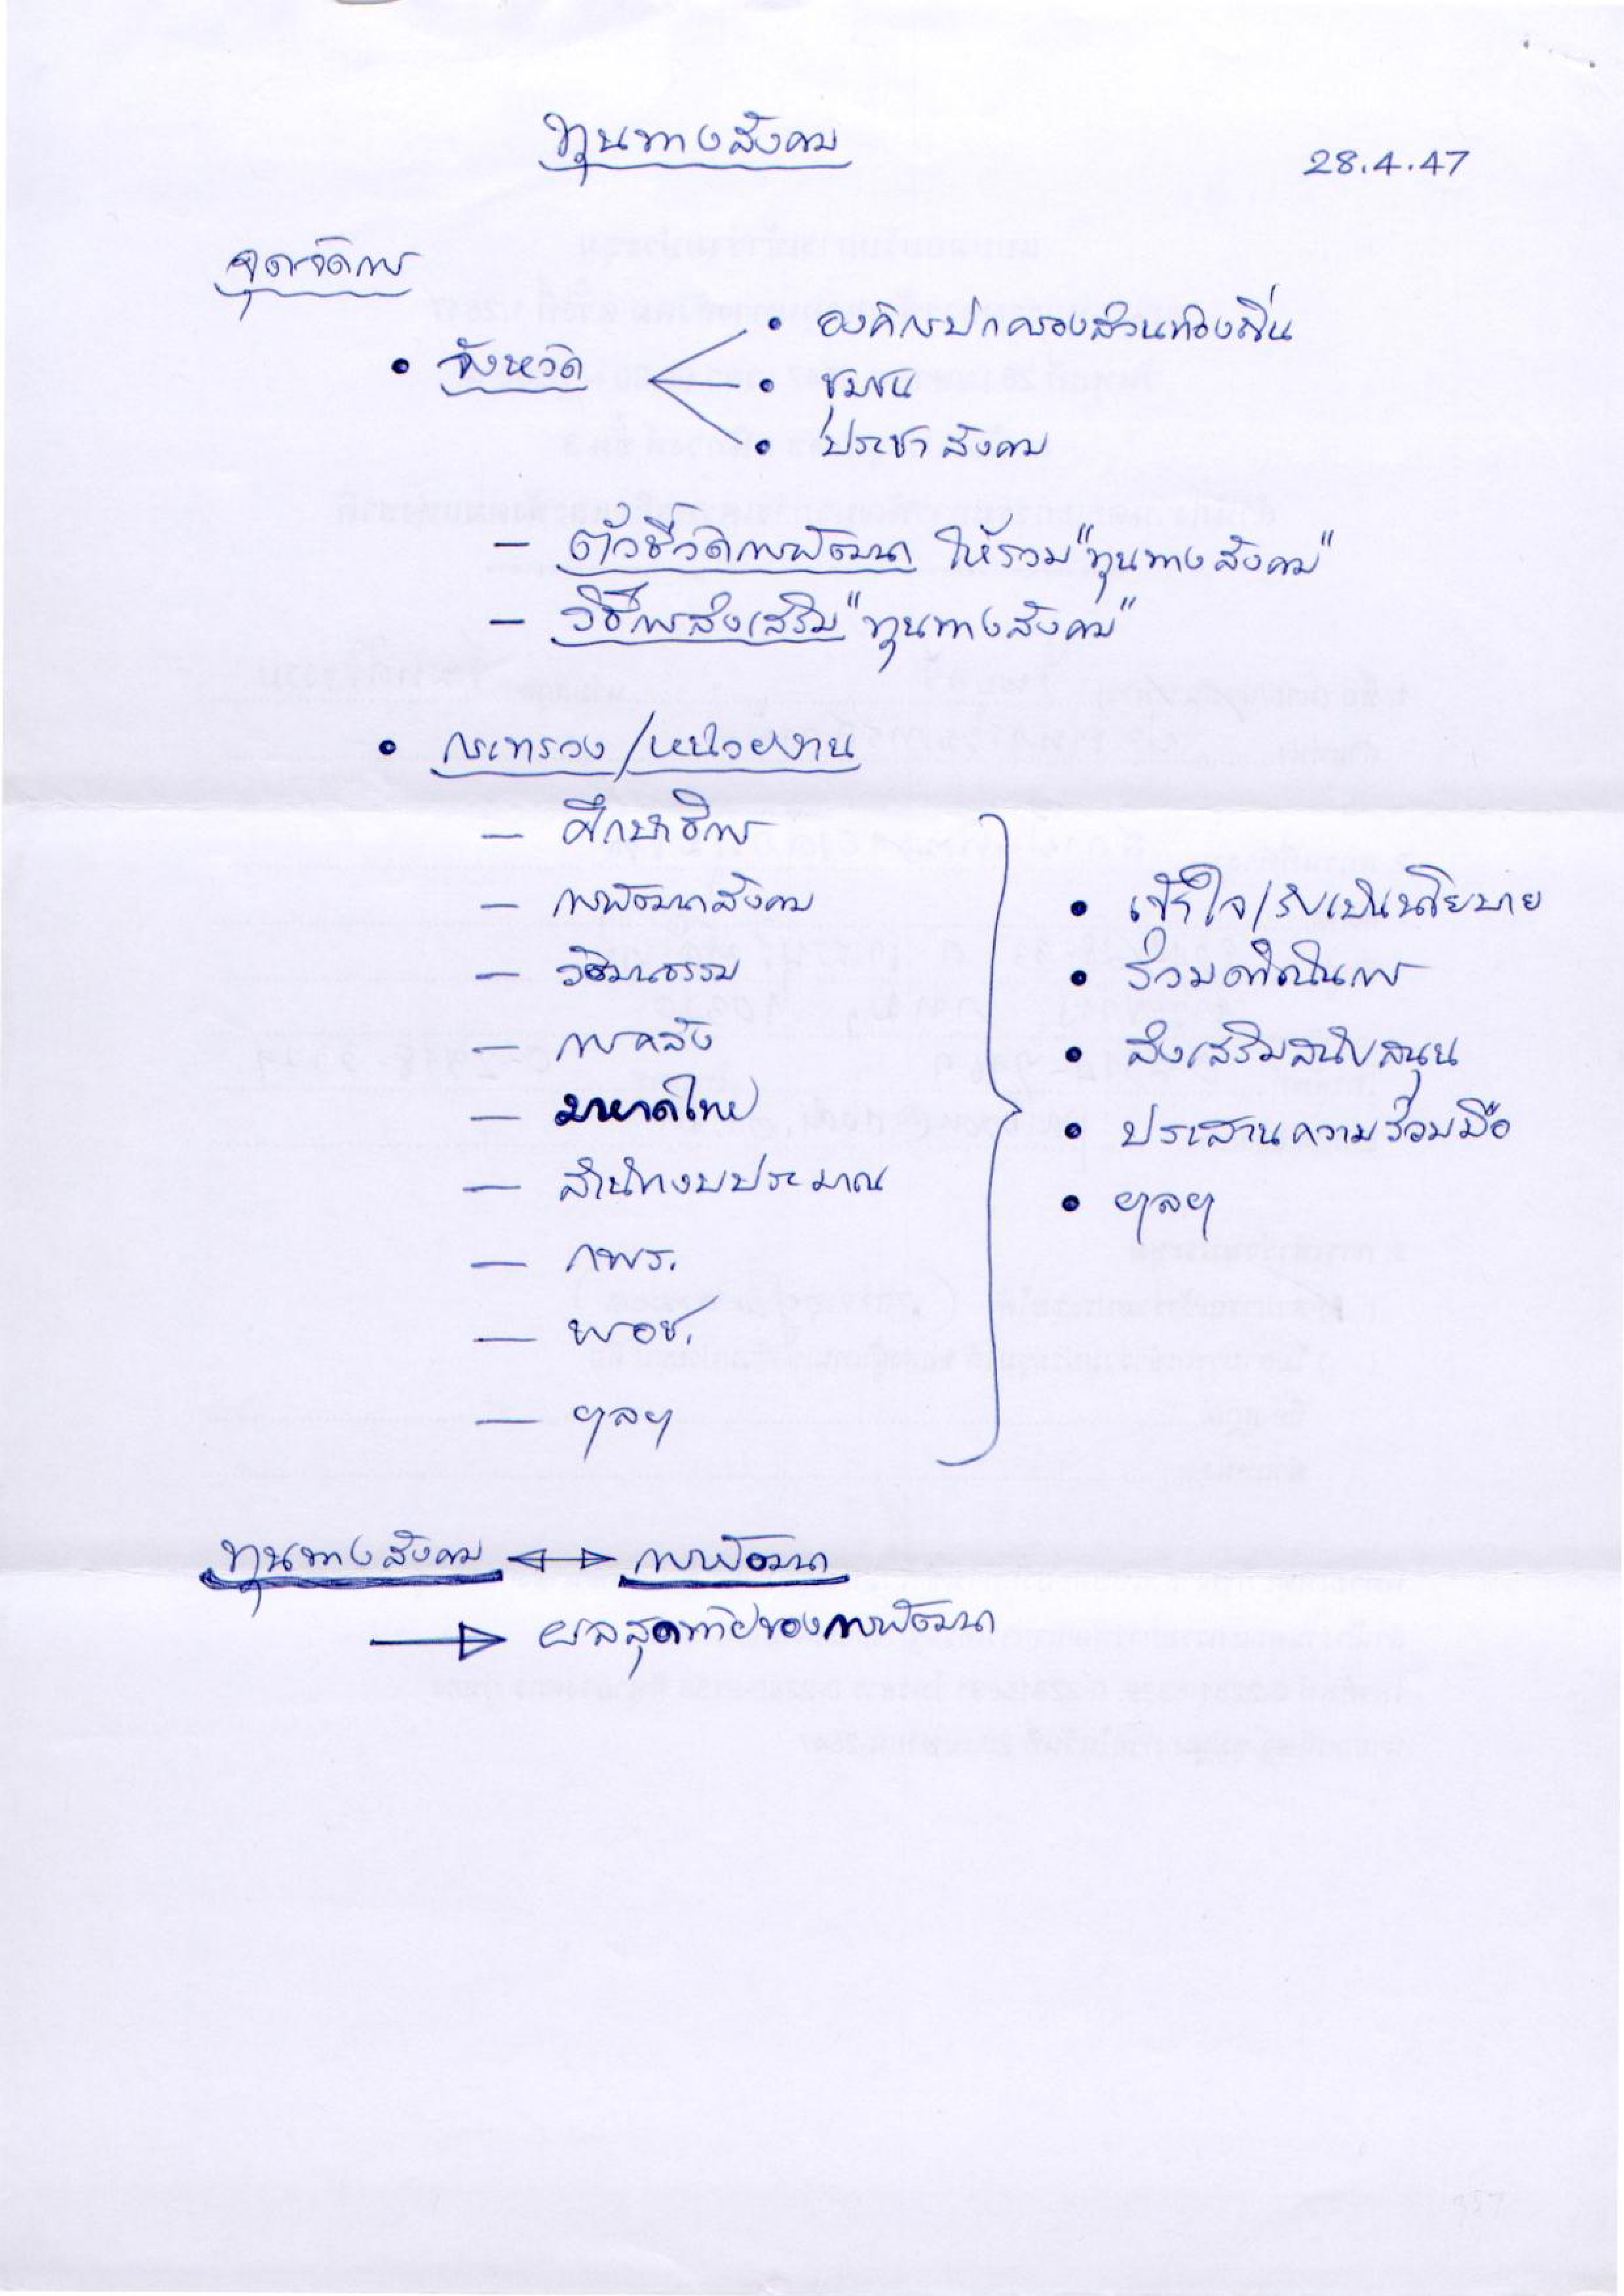 ทุนทางสังคม
28.4.47
จุดจัดการ
• จังหวัด
• องค์กรปกครองส่วนท้องถิ่น
• ชุมชน
• ประชาสังคม
– ตัวชี้วัดการพัฒนา ให้รวม "ทุนทางสังคม"
– วิธีการส่งเสริม "ทุนทางสังคม"
• กระทรวง/หน่วยงาน
– ศึกษาธิการ
– การพัฒนาสังคม
– วัฒนธรรม
– การคลัง
– มหาดไทย
– สำนักงบประมาณ
– กพร.
– พอช.
– ฯลฯ
• เข้าใจ/รับเป็นนโยบาย
• ร่วมดำเนินการ
• ส่งเสริมสนับสนุน
• ประสานความร่วมมือ
• ฯลฯ
ทุนทางสังคม ↔ การพัฒนา
→ ผลสุดท้ายของการพัฒนา